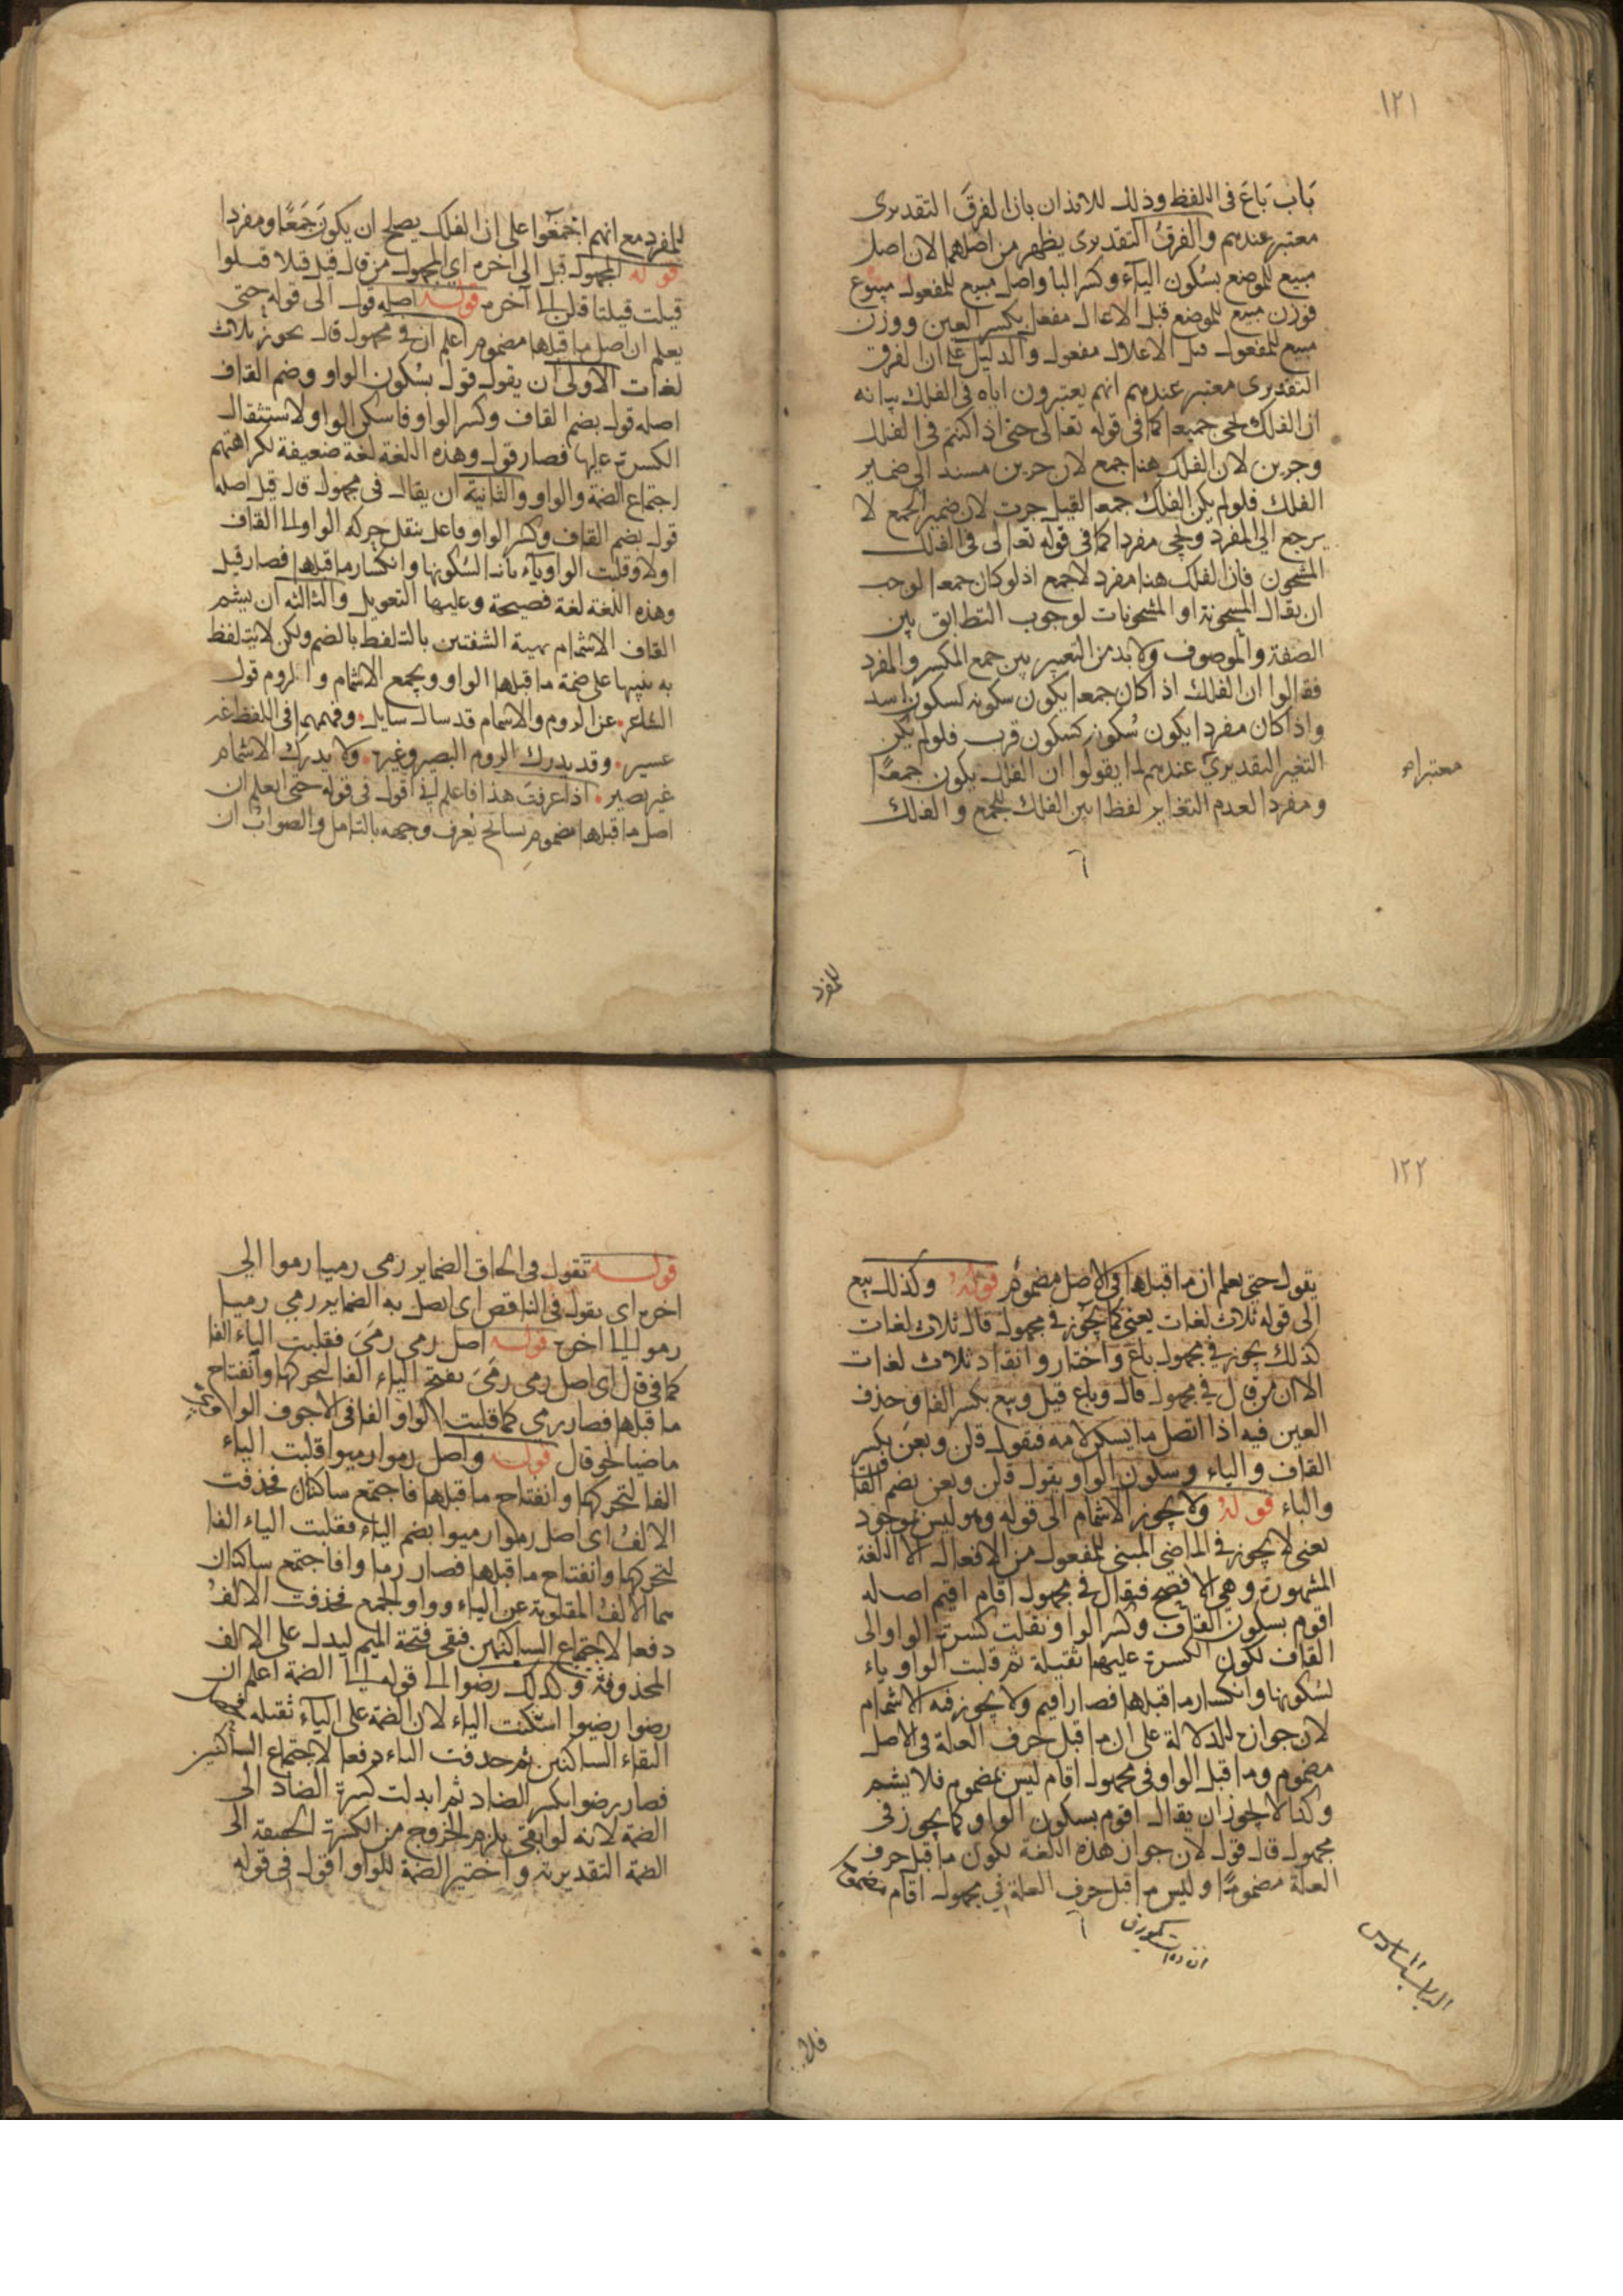 ١٢١
باب باع فى اللفظ وذلك للايذان بان الفرق التقديرى
معتبر عندهم والفرق التقديرى يظهر من اصلهما لان اصل
مبيع للموضع بسكون الياء وكسر البا واصل مبيع للمفعول مبيوع
فوزن مبيع للموضع قبل الاعلال مفعل بكسر العين ووزن
مبيع للمفعول قبل الاعلال مفعول والدليل على ان الفرق
التقديرى معتبر عندهم انهم يعتبرون اياه فى الفلك بيانه
ان الفلك يجى جمعا كما فى قوله تعالى حتى اذا كنتم فى الفلك
وجرين لان الفلك هنا جمع لان جرين مسند الى ضمير
الفلك فلو لم يكن الفلك جمعا لقيل جرت لان ضمير الجمع لا
يرجع الى المفرد ويجى مفردا كما فى قوله تعالى فى الفلك
المشحون فان الفلك هنا مفرد لا جمع اذ لو كان جمعا لوجب
ان يقال المشحونة او المشحونات لوجوب التطابق بين
الصفة والموصوف ولا بد من التعبير بين جمع المكسر والمفرد
فقالوا ان الفلك اذا كان جمعا يكون سكونه كسكون اسد
واذا كان مفردا يكون سكونه كسكون قرب فلو لم يكن
التغير التقديرى عندهم لما يقولوا ان الفلك يكون جمعا
معتبرا
ومفردا لعدم التغاير لفظا بين الفلك للجمع والفلك
للمفرد
للمفرد مع انهم اجمعوا على ان الفلك يصلح ان يكون جمعا ومفردا
قوله المجهول قيل الى اخره اى المجهول من قال قيل قيلا قيلوا
قيلت قيلتا قلن الى آخره قوله اصله قول الى قوله حتى
يعلم ان اصل ما قبلها مضموم اعلم ان فى مجهول قال يجوز ثلاث
لغات الاولى ان يقول قول بسكون الواو وضم القاف
اصله قول بضم القاف وكسر الواو فاسكن الواو لاستثقال
الكسرة عليها فصار قول وهذه اللغة لغة ضعيفة لكراهتهم
اجتماع الضمة والواو والثانية ان يقال فى مجهول قال قيل اصله
قول بضم القاف وكسر الواو فاعل بنقل حركة الواو الى القاف
اولا وقلبت الواو ياء ثانيا لسكونها وانكسار ما قبلها فصار قيل
وهذه اللغة لغة فصيحة وعليها التعويل والثالثه ان يشم
القاف الاشمام تهيئة الشفتين بالتلفظ بالضم ولكن لا يتلفظ
به تنبيها على ضمة ما قبلها الواو ويجمع الاشمام والروم قول
الشاعر عن الروم والاشمام قد سال سايل وفهمهما فى اللفظ غير
عسير وقد يدرك الروم البصير وغيره ولا يدرك الاشمام
غير بصير اذا عرفت هذا فاعلم انى اقول فى قوله حتى يعلم ان
اصل ما قبلها مضموم تسامح يعرف وجهه بالتامل والصواب ان
١٢٢
يقول حتى يعلم ان ما قبلها فى الاصل مضموم قوله وكذلك بيع
الى قوله ثلاث لغات يعنى كما يجوز فى مجهول قال ثلاث لغات
كذلك يجوز فى مجهول باع واختار وانقاد ثلاث لغات
الا ان من قال فى مجهول قال وباع قيل وبيع بكسر الفا وحذف
العين فيه اذا اتصل ما يسكن لامه فيقول قلن وبعن بكسر
القاف والباء وسكون الواو يقول قلن وبعن بضم القاف
والباء قوله ولا يجوز الاشمام الى قوله وهو ليس بموجود
يعنى لا يجوز فى الماضى المبنى للمفعول من الافعال الا اللغة
المشهورة وهى الافصح فيقال فى مجهول اقام اقيم اصله
اقوم بسكون القاف وكسر الواو ونقلت كسرة الواو الى
القاف لكون الكسرة عليها ثقيلة ثم قلبت الواو ياء
لسكونها وانكسار ما قبلها فصار اقيم ولا يجوز فيه الاشمام
لان جوازه للدلالة على ان ما قبل حرف العلة فى الاصل
مضموم وما قبل الواو فى مجهول اقام ليس بمضموم فلا يشم
وكذا لا يجوز ان يقال اقوم بسكون الواو كما يجوز فى
مجهول قال قول لان جواز هذه اللغة لكون ما قبل حرف
العلة مضموما وليس ما قبل حرف العلة فى مجهول اقام مضموما
الباب السادس
فلا
قوله تقول فى الحاق الضماير رمى رميا رموا الى
اخره اى تقول فى الناقص اى اتصل به الضماير رمى رميا
رموا الى اخره قوله اصل رمى رمى فقلبت الياء الفا
كما فى قال اى اصل رمى رمى بفتح الياء الفا لتحركها وانفتاح
ما قبلها فصار رمى كما قلبت الواو الفا فى الاجوف الواوى
ماضيا نحو قال قوله واصل رموا رميوا قلبت الياء
الفا لتحركها وانفتاح ما قبلها فاجتمع ساكنان فحذفت
الالف اى اصل رموا رميوا بضم الياء فقلبت الياء الفا
لتحركها وانفتاح ما قبلها فصار رماوا فاجتمع ساكنان
هما الالف المقلوبة عن الياء وواو الجمع فحذفت الالف
دفعا لاجتماع الساكنين فبقى فتحة الميم ليدل على الالف
المحذوفة وكذلك رضوا الى قوله الى الضمة اعلم ان
رضوا رضيوا اسكنت الياء لان الضمة على الياء ثقيلة فحصل
التقاء الساكنين ثم حذفت الياء دفعا لاجتماع الساكنين
فصار رضوا بكسر الضاد ثم ابدلت كسرة الضاد الى
الضمة لانه لو ابقى يلزم الخروج من الكسرة الحقيقة الى
الضمة التقديرية واختير الضمة للواو اقول فى قوله